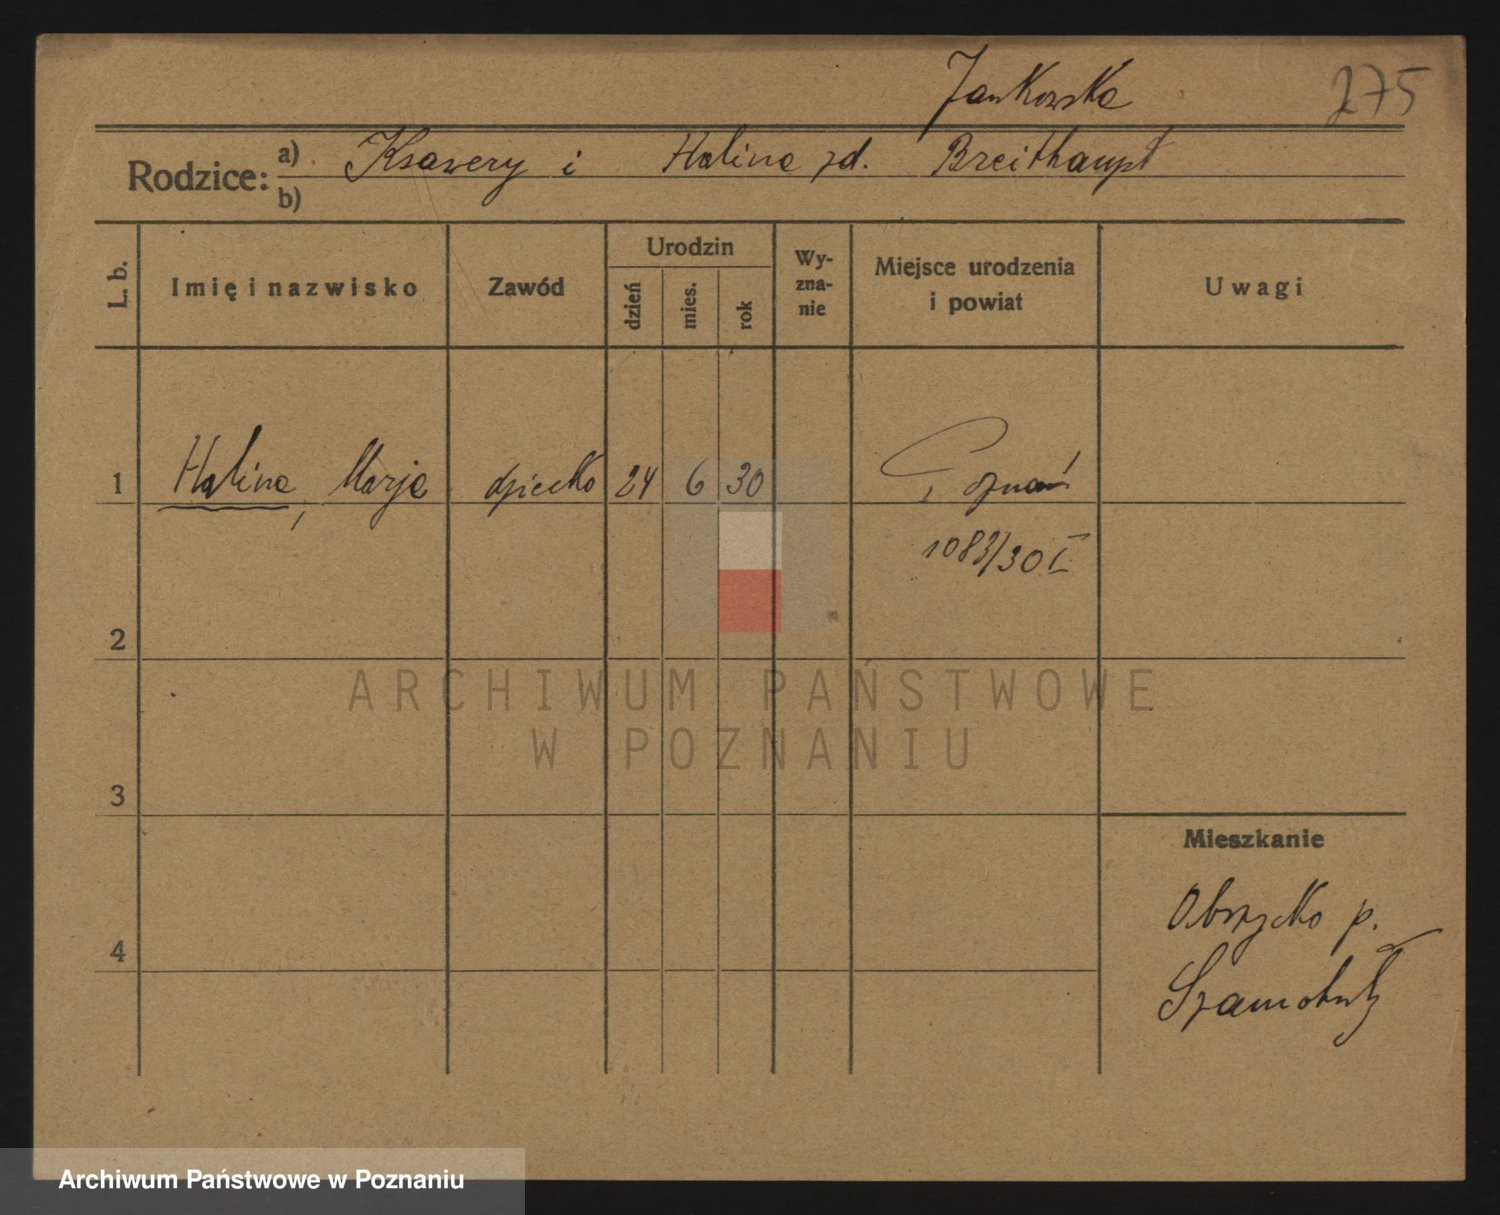 Jankowska 275
Rodzice: a) Ksawery i Halina zd. Breithaupt
b)
L. b. Imię i nazwisko Zawód Urodzin dzień mies. rok Wy-zna-nie Miejsce urodzenia i powiat Uwagi
1 Halina, Marja dziecko 24 6 30 Poznań
1083/30 I
2
ARCHIWUM PAŃSTWOWE
W POZNANIU
3
Mieszkanie
Obrzycko p.
4
Szamotuły
Archiwum Państwowe w Poznaniu